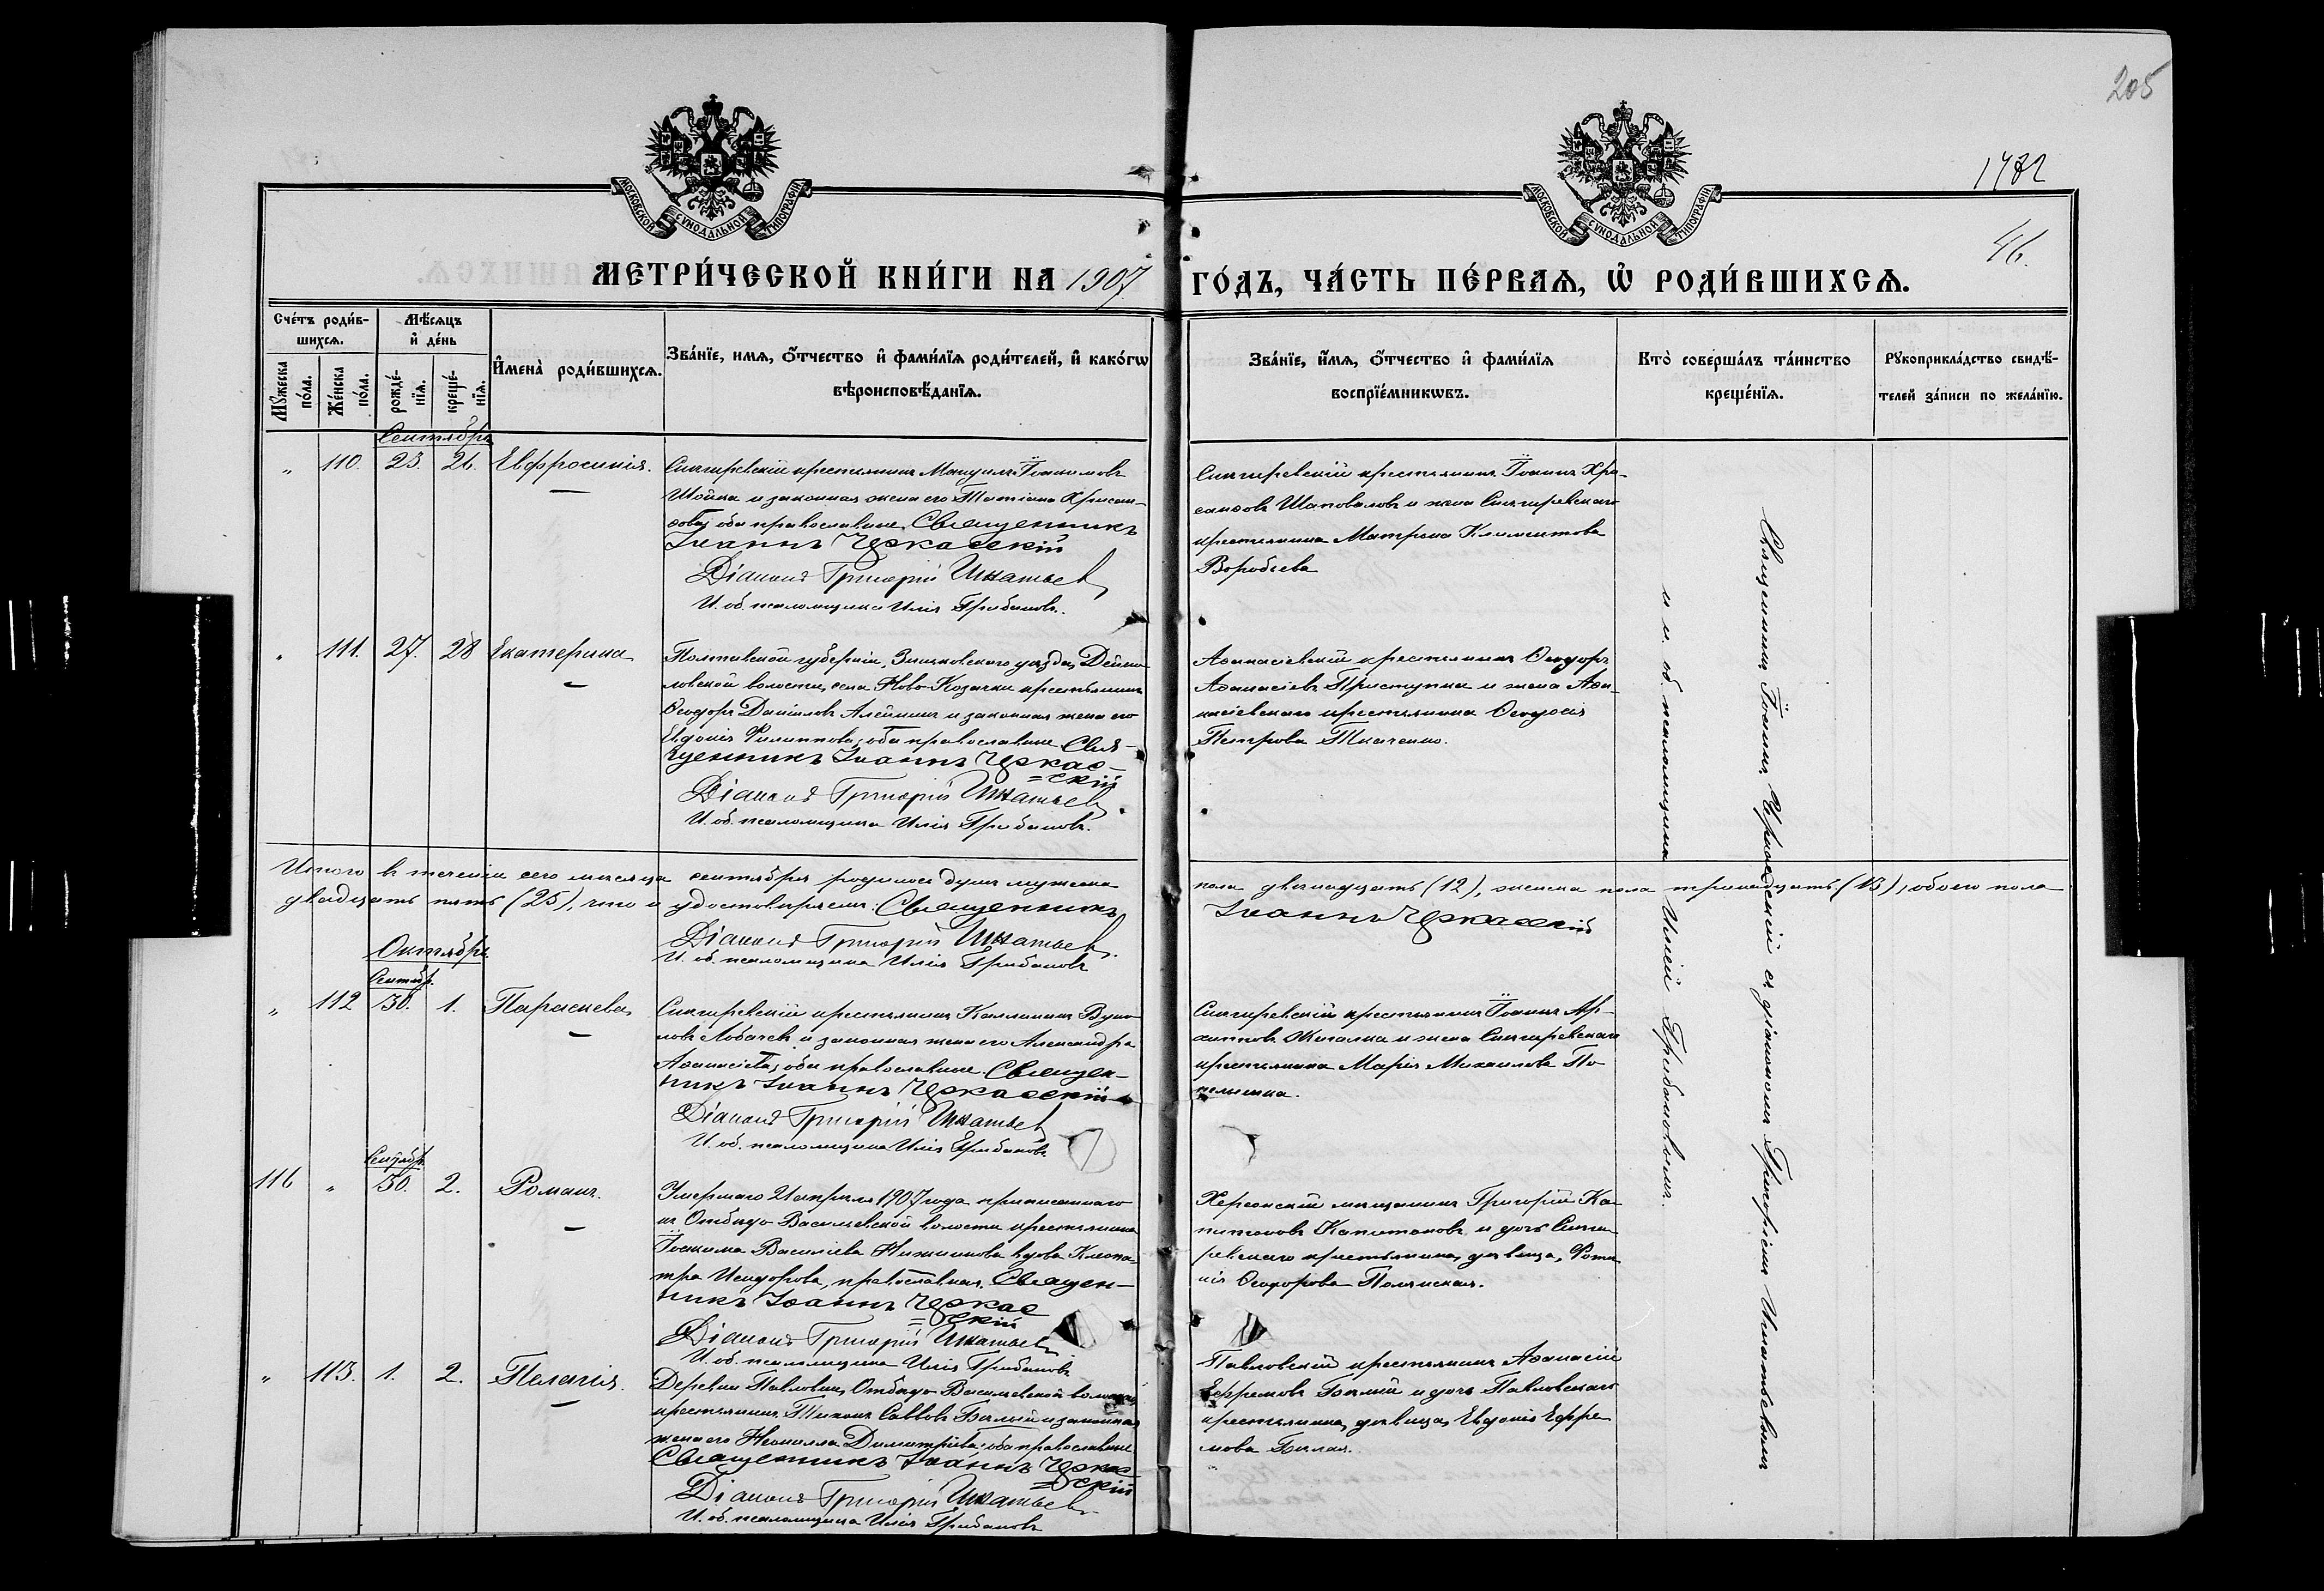 205
1782
46.
МОСКОВСКОЙ СѴНОДАЛЬНОЙ ТИПОГРАФІИ
МОСКОВСКОЙ СѴНОДАЛЬНОЙ ТИПОГРАФІИ
МЕТРИ́ЧЕСКОЙ КНИ́ГИ НА 1907 ГО́ДЪ, ЧА́СТЬ ПЕ́РВАѦ, Ѡ҆ РОДИ́ВШИХСѦ.
Сче́тъ роди́в-
шихсѧ.
Мѣ́сѧцъ
и҆ де́нь
Мꙋ́жеска
по́ла.
Же́нска
по́ла.
рожде́-
нїѧ.
креще́-
нїѧ.
И҆мена̀ роди́вшихсѧ.
Зва́нїе, имѧ, ѻ҆́тчество и҆ фами́лїѧ роди́телей, и҆ како́гѡ
вѣроисповѣ́данїѧ.
Зва́нїе, и҆́мѧ, ѻ҆́тчество и҆ фами́лїѧ
воспрїе́мникѡвъ.
Кто̀ соверша́лъ та́инство
креще́нїѧ.
Рꙋкоприкла́дство свидѣ́-
телей за́писи по жела́нїю.
Сентябрь
" 110. 25. 26. Евфросинія.
Снигиревскій крестьянинъ Мануилъ Іоакимовъ
Шойка и законная жена его Татіана Хрисан-
ѳова, оба православные. Священникъ
Іоаннъ Черкасскій
Діаконъ Григорій Игнатьев
И. об. псаломщика Илія Грибановъ.
Снигиревскій крестьянинъ Іоаннъ Хри-
санѳовъ Шаповаловъ и жена Снигиревскаго
крестьянина Матрона Климентова
Воробьева
" 111. 27. 28 Екатерина
Полтавской губерніи, Зиньковскаго уѣзда, Дейка-
ловской волости, села Ново-Козачки крестьянинъ
Ѳеодоръ Даніиловъ Алейникъ и законная жена его
Евдокія Филиппова, оба православные Свя-
щенникъ Іоаннъ Черкас-
=скій
Діаконъ Григорій Игнатьев
И. об. псаломщика Илія Грибановъ.
Аѳанасіевскій крестьянинъ Ѳеодоръ
Аѳанасіевъ Приступка и жена Аѳа-
насіевскаго крестьянина Ѳеодосія
Петрова Ткаченко.
Итого в теченіи сего мѣсяца сентября родилось душъ мужеска пола двѣнадцать (12), женска пола тринадцать (13), обоего пола
двадцать пять (25), что и удостовѣряемъ: Священникъ Іоаннъ Черкасскій
Діаконъ Григорій Игнатьев
И. об. псаломщика Илія Грибановъ
Октябрь.
Сентябр.
" 112 30. 1. Параскева
Снигиревскій крестьянинъ Каллиникъ Вуко-
ловъ Лобачевъ и законная жена его Александра
Аѳанасіева, оба православные. Священ-
никъ Іоаннъ Черкасскій
Діаконъ Григорій Игнатьев
И. об. псаломщика Илія Грибановъ
Снигиревскій крестьянинъ Іоаннъ Ар-
хиповъ Жигалка и жена Снигиревскаго
крестьянина Марія Михаилова По-
Сентябр.
116 " 30. 2. Романъ.
Умершаго 21 апрѣля 1907 года приписаннаго
къ Отбѣдо-Васильевской волости крестьянина
Іоакима Василіева Нижникова вдова Клеопа-
тра Исидорова, православная. Священ-
никъ Іоаннъ Черкас
=скій
Діаконъ Григорій Игнатьев
И. об. псаломщика Илія Грибановъ
Херсонскій мѣщанинъ Григорій Ка-
питоновъ Капитоновъ и дочь Сниги-
ревскаго крестьянина, дѣвица, Фоти-
нія Ѳеодорова Полянская.
" 113. 1. 2. Пелагія.
Деревни Павловки, Отбѣдо-Васильевской волости
крестьянинъ Тихонъ Саввовъ Бѣлый и законная
жена его Неонилла Димитріева, оба православные
Священникъ Іоаннъ Черкас-
=скій
Діаконъ Григорій Игнатьев
И. об. псаломщика Илія Грибановъ
Павловскій крестьянинъ Аѳанасій
Ефремовъ Бѣлый и дочь Павловскаго
крестьянина, дѣвица, Евдокія Ефре-
мова Бѣлая.
Священникъ Іоаннъ Черкасскій съ діакономъ Григоріемъ Игнатьевымъ
и и. об. псаломщика Иліей Грибановымъ.